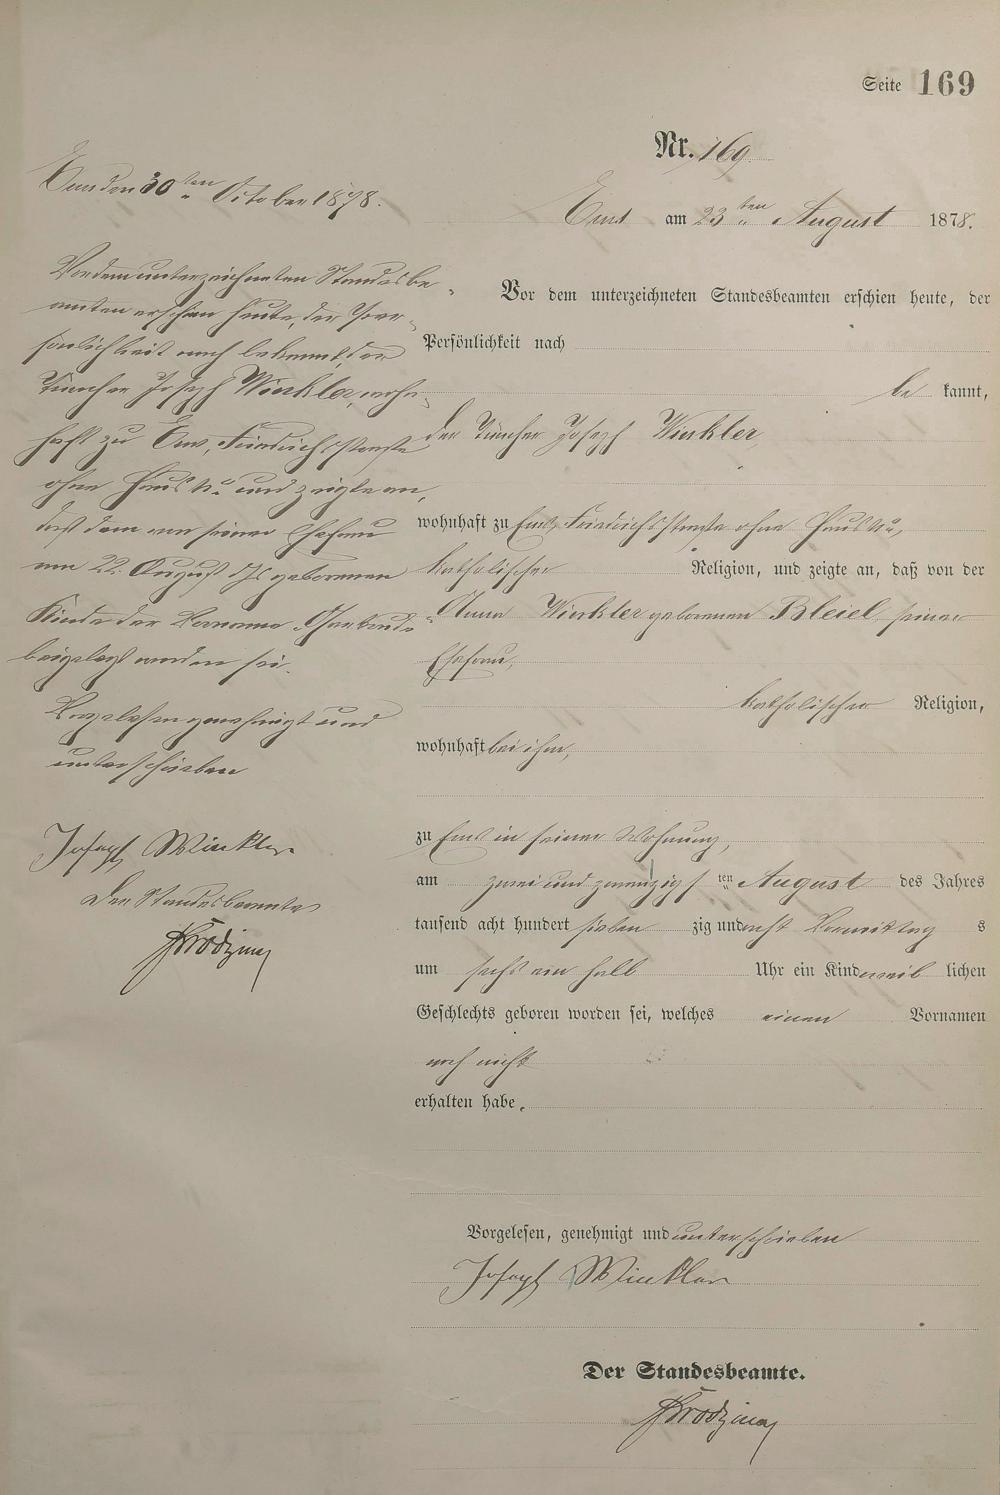 Seite 169
Nr. 169.
Ems am 23ten August 1878.
Vor dem unterzeichneten Standesbeamten erschien heute, der
Persönlichkeit nach
be kannt,
der Tüncher Joseph Winkler,
wohnhaft zu Ems, Friedrichsstraße ohne Haus No,
katholischer Religion, und zeigte an, daß von der
Anna Winkler geborenen Bleiel, seiner
Ehefrau,
katholischer Religion,
wohnhaft bei ihm,
zu Ems in seiner Wohnung,
am zwei und zwanzigsten August des Jahres
tausend acht hundert sieben zig und acht Vormittag s
um sechs ein halb Uhr ein Kind weib lichen
Geschlechts geboren worden sei, welches einen Vornamen
noch nicht
erhalten habe.
Vorgelesen, genehmigt und unterschrieben
Joseph Winkler
Der Standesbeamte.
Ems den 30ten October 1878.
Vor dem unterzeichneten Standesbe-
amten erschien heute, der Per-
sönlichkeit nach bekannt, der
Tüncher Joseph Winkler, wohn-
haft zu Ems, Friedrichsstraße
ohne Haus No und zeigte an,
daß dem von seiner Ehefrau
am 22. August d Js geborenen
Kinde der Vorname Gertrude
beigelegt worden sei.
Vorgelesen genehmigt und
unterschrieben
Joseph Winkler
Der Standesbeamte